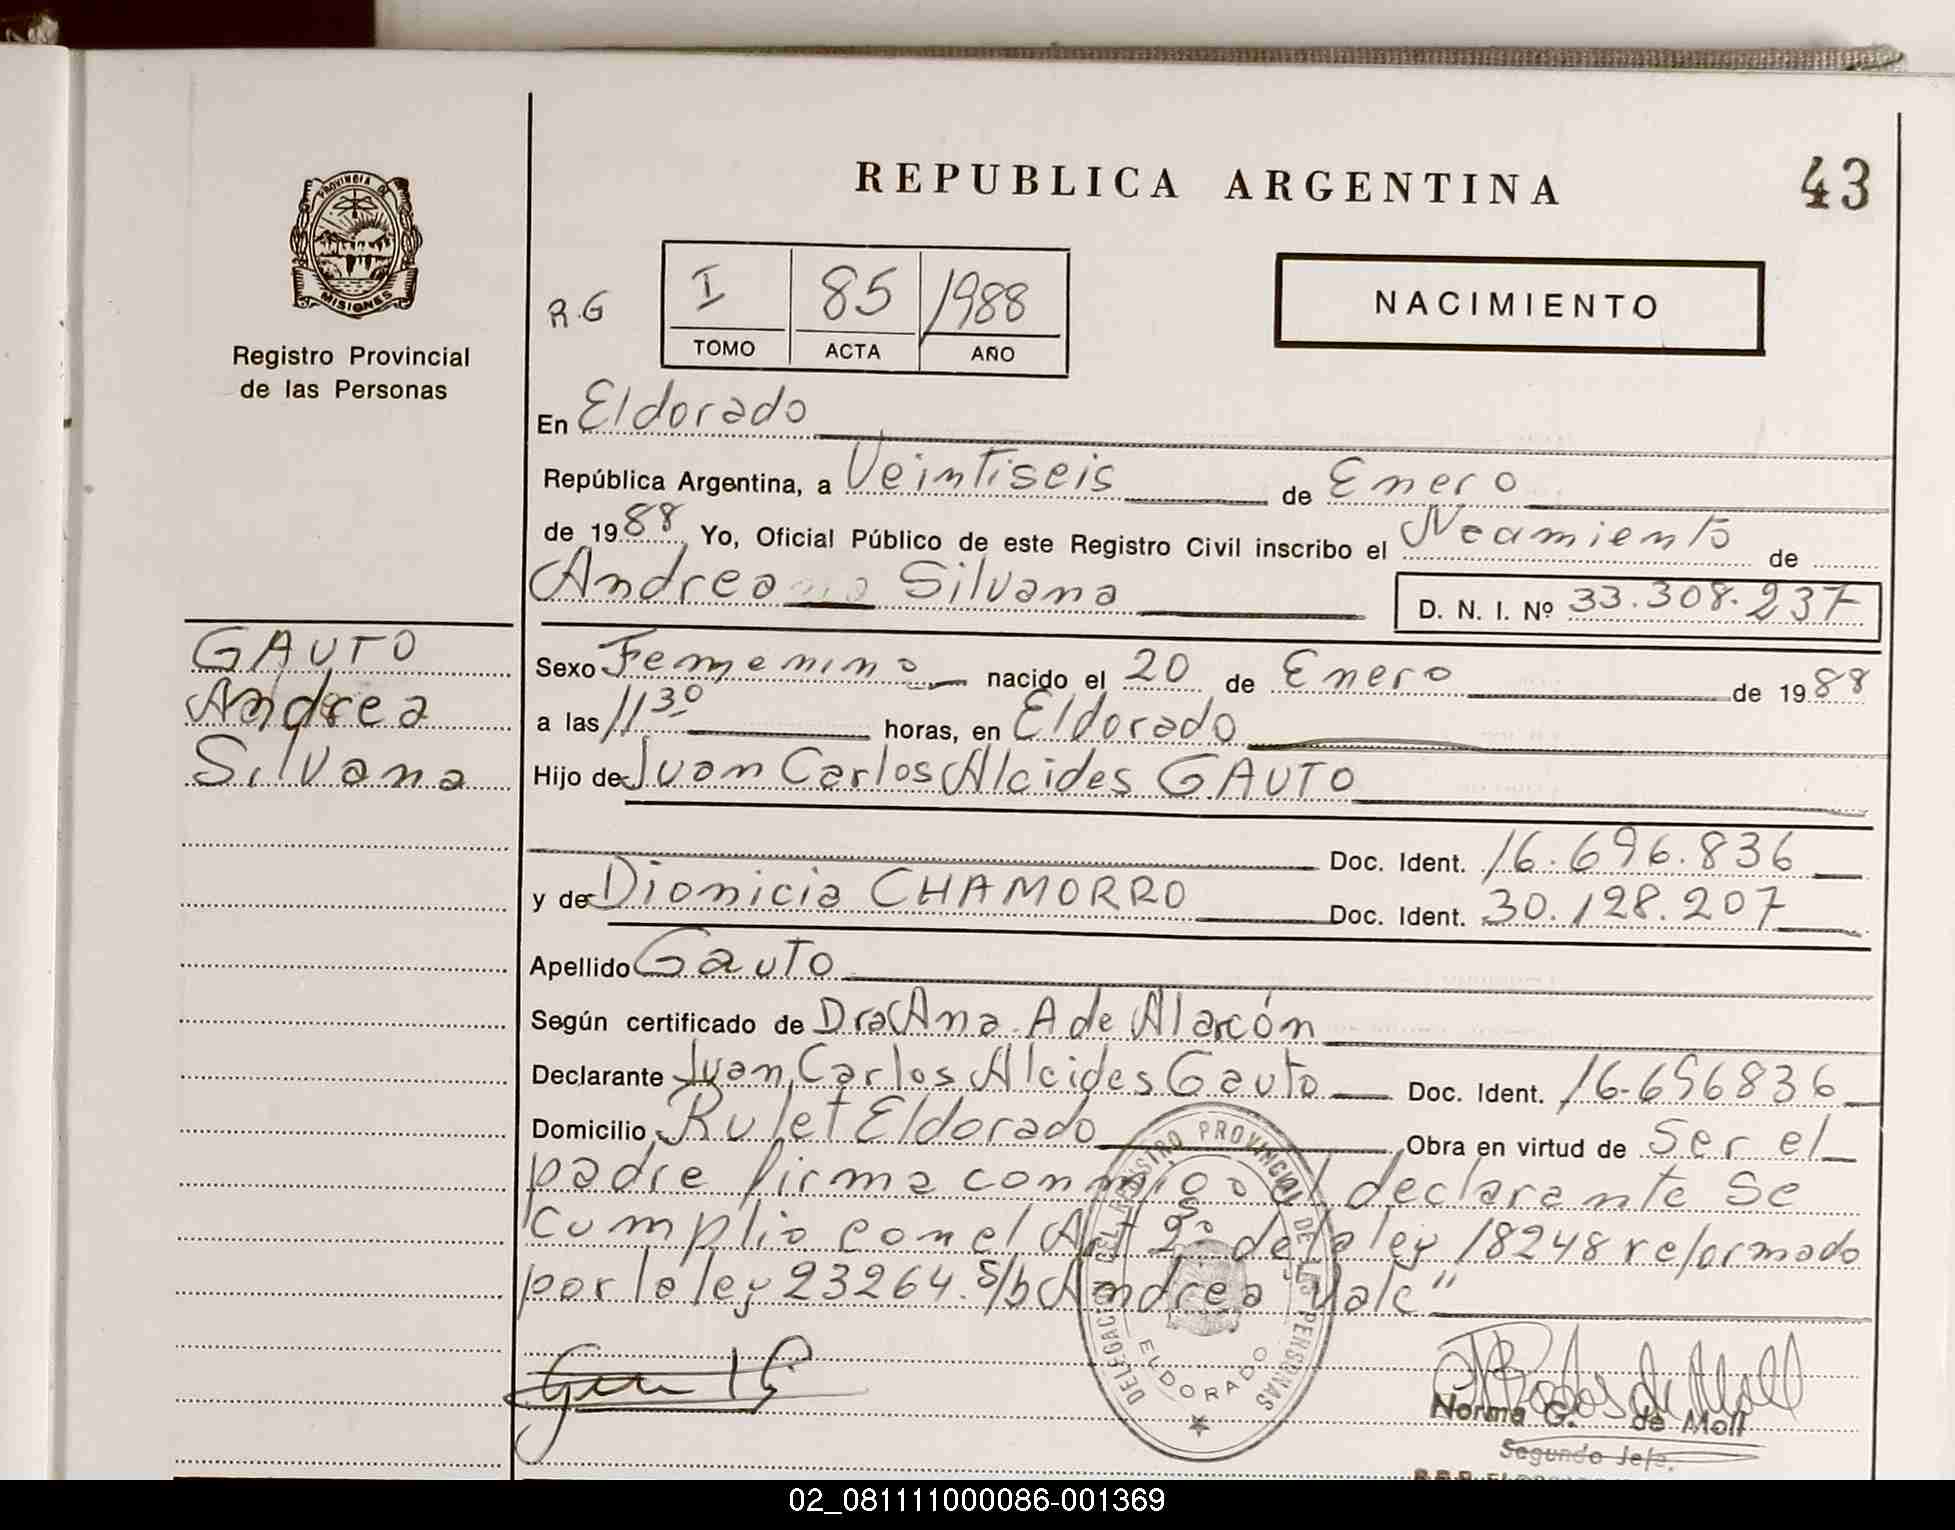 REPUBLICA ARGENTINA
43
PROVINCIA DE
MISIONES
Registro Provincial
de las Personas
R.G
I 85 1988
TOMO ACTA AÑO
NACIMIENTO
En Eldorado
República Argentina, a Veintiseis de Enero
de 1988 Yo, Oficial Público de este Registro Civil inscribo el Nacimiento de
Andrea Silvana D. N. I. Nº 33.308.237
GAUTO
Andrea
Silvana
Sexo Femenino nacido el 20 de Enero de 1988
a las 11 30 horas, en Eldorado
Hijo de Juan Carlos Alcides GAUTO
Doc. Ident. 16.696.836
y de Dionicia CHAMORRO Doc. Ident. 30.128.207
Apellido Gauto
Según certificado de Dra Ana A de Alarcón
Declarante Juan Carlos Alcides Gauto Doc. Ident. 16.696836
Domicilio Eldorado Obra en virtud de Ser el
padre firma conmigo el declarante Se
cumplio con el Art 2º de la ley 18248 reformado
por la ley 23264. S/b Andrea Vale"
DELEGACION DEL REGISTRO PROVINCIAL DE LAS PERSONAS
ELDORADO
Norma G. de Moll
Segundo Jefe.
02_081111000086-001369